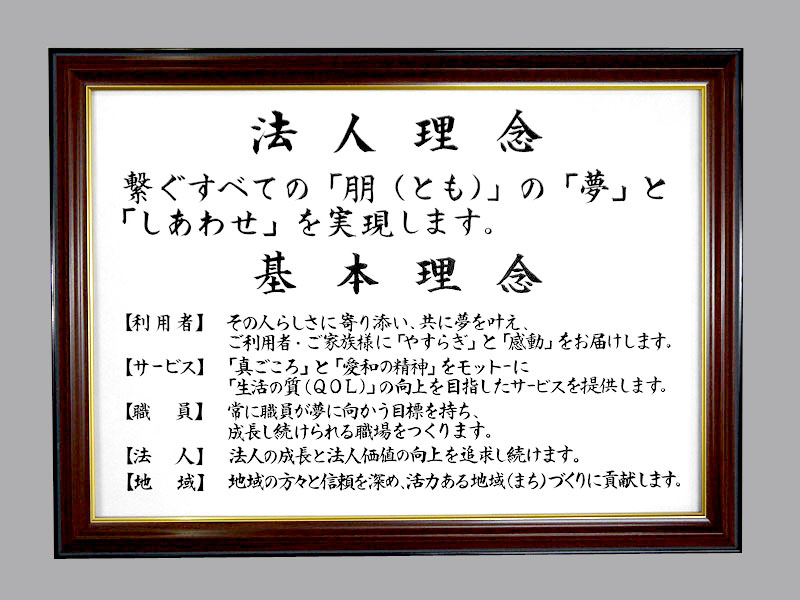 法人理念
繋ぐすべての「朋（とも）」の「夢」と
「しあわせ」を実現します。
基本理念
【利用者】 その人らしさに寄り添い、共に夢を叶え、
ご利用者・ご家族様に「やすらぎ」と「感動」をお届けします。
【サービス】 「真ごころ」と「愛和の精神」をモットーに
「生活の質（QOL）」の向上を目指したサービスを提供します。
【職員】 常に職員が夢に向かう目標を持ち、
成長し続けられる職場をつくります。
【法人】 法人の成長と法人価値の向上を追求し続けます。
【地域】 地域の方々と信頼を深め、活力ある地域（まち）づくりに貢献します。